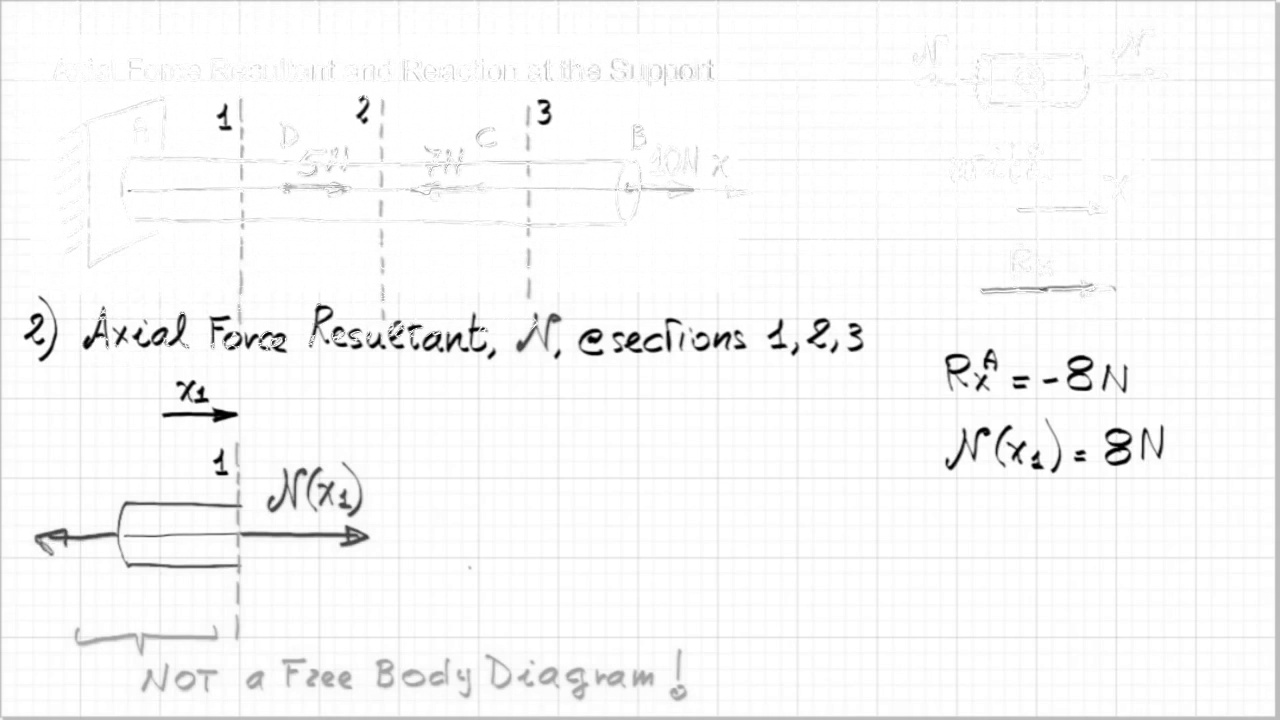 Axial Force Resultant and Reaction at the Support
N N
1 2 3
A D C B
5N 7N 10N x
x
Rx
2) Axial Force Resultant, N, @ sections 1, 2, 3
Rx^A = -8N
x1
N(x1) = 8N
1
N(x1)
NOT a Free Body Diagram!